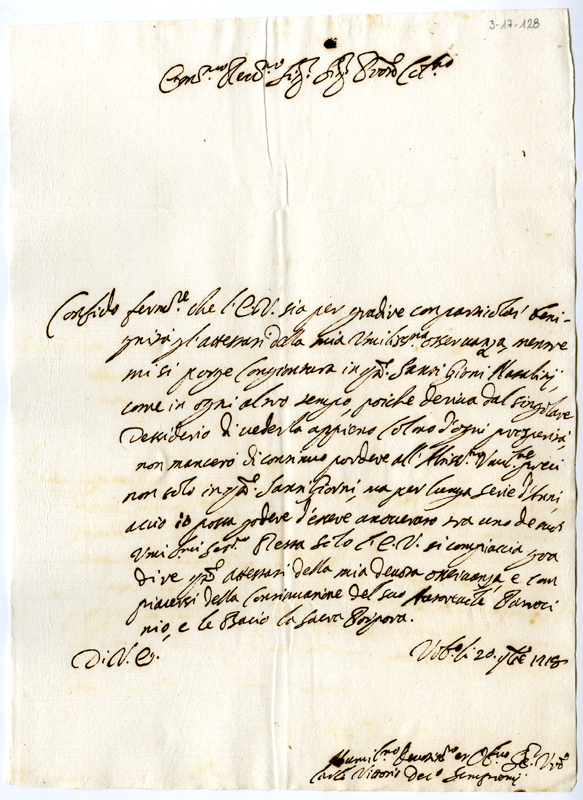 3-17-128
Em.mo Rev.mo Sig. Sig. Pron. Col.mo
Confido ferm.te che l'E.V. sia per gradire con particolar beni-
gnità gl'attestati della mia Umiliss.ma osservanza, mentre
mi si porge congiontura in q.ti Santi Giorni Natalizij
come in ogni altro tempo, poiche deriva dal singolare
Desiderio di vederla appieno colmo d'ogni prosperità,
non mancerò di continuo pordere all'Altiss.mo Umil.me preci
non solo in q.ti Santi Giorni, ma per lunga serie d'Anni,
acciò io possa godere d'essere annoverato tra uno de suoi
Umi Ser.ri Resta solo l'E.V. si compiaccia gra-
dire q.ti attestati della mia devota osservanza, e com-
piacersi della Continuazione del suo Autorevole Patroci-
nio, e le Bacio la Sacra Porpora.
Di V.E.
20. 1718
Humil.mo Devotis.mo et Obl.mo
Carlo Vittorio Sempronij